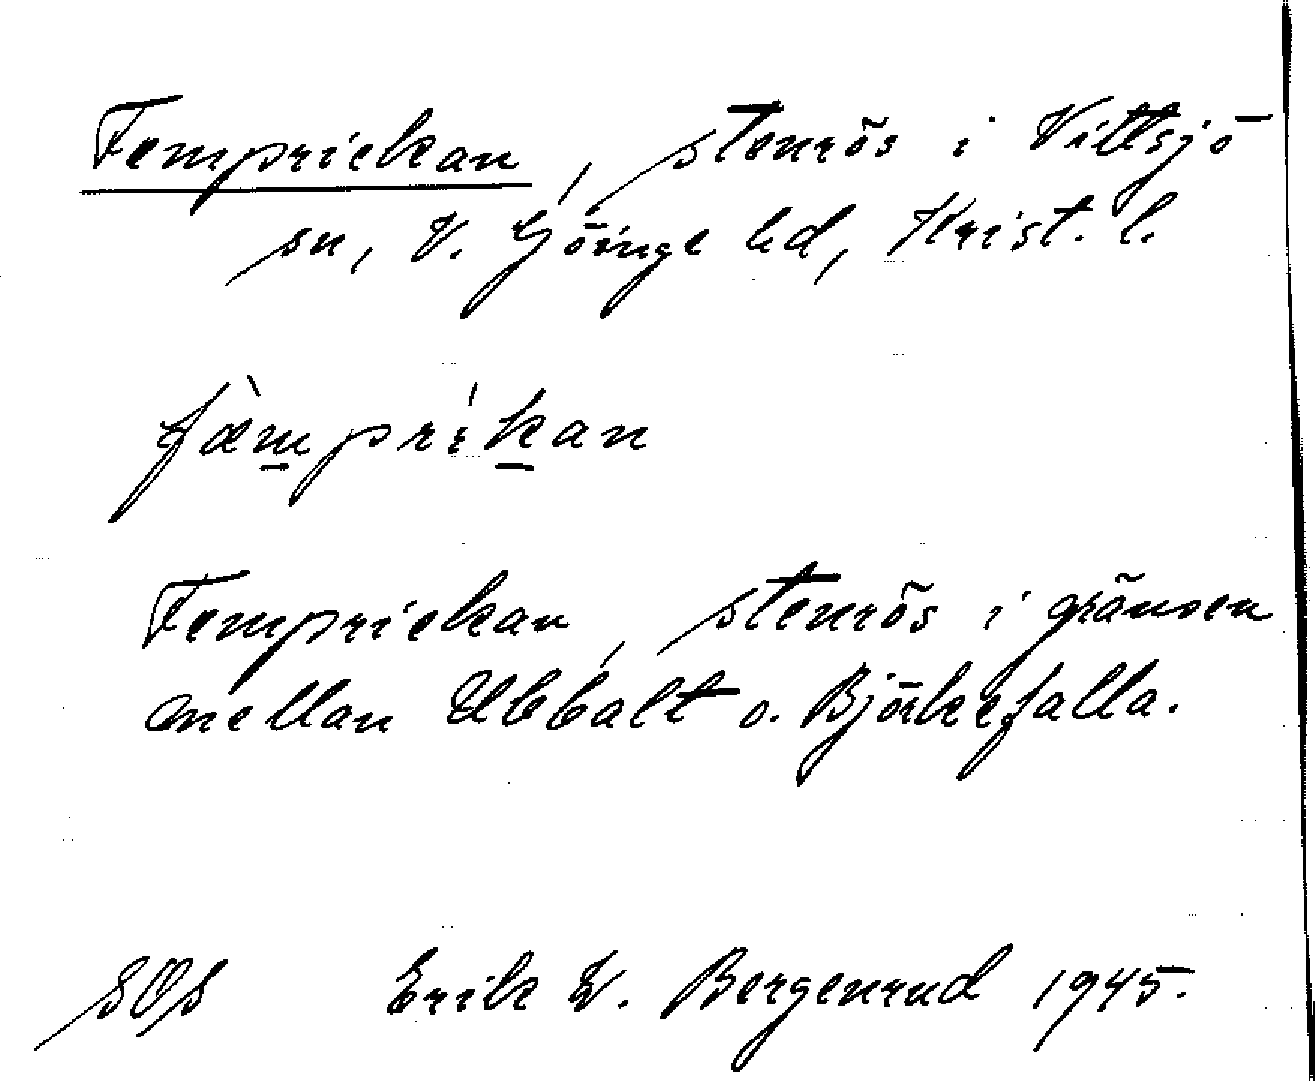 Femprickan, stenrös i Vittsjö
sn, V. Göinge hd, Krist. l.
fæ̀mpríkan
Femprickan, stenrös i gränsen
mellan Ubbalt o. Björkefalla.
SOS Erik W. Bergenrud 1945.